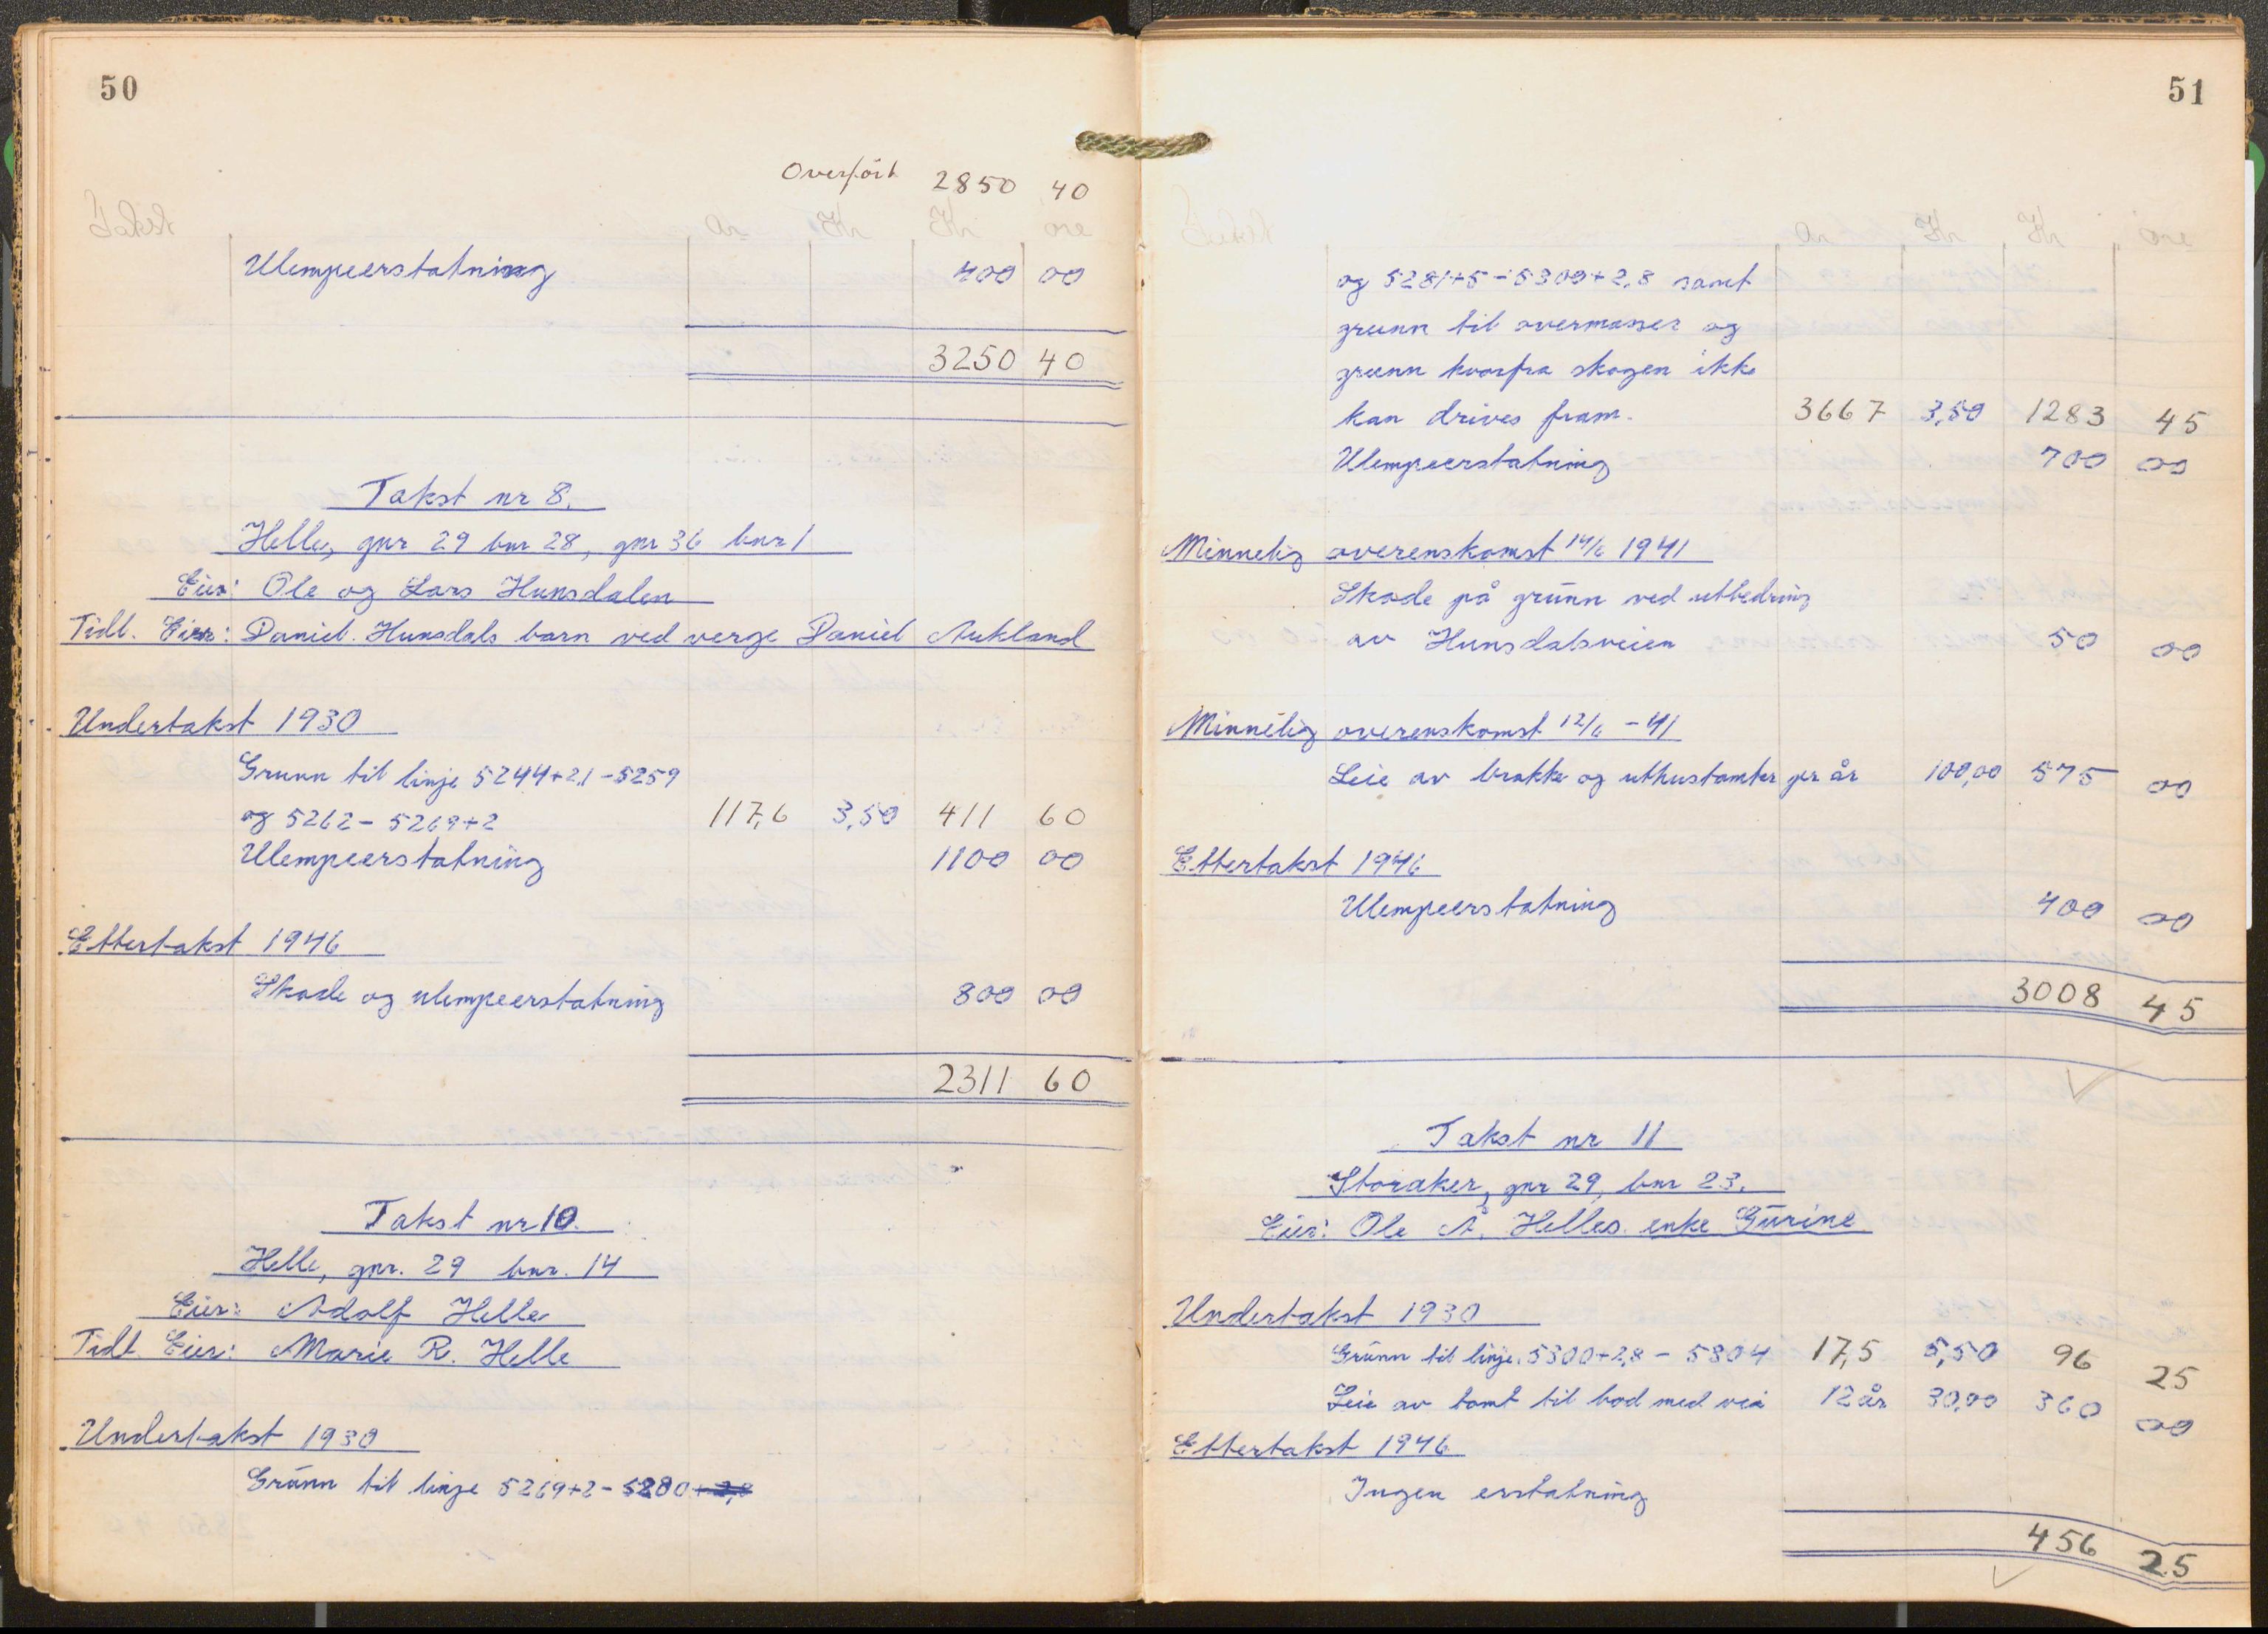 50
Overført 2850 40
Takst ar Kr Kr øre
Ulempeerstatning 400 00
3250 40
Takst nr 8.
Helle, gnr 29 bnr 28, gnr 36 bnr 1
Eier: Ole og Lars Hunsdalen
Tidl. Eier: Daniel Hunsdals barn ved verge Daniel Aukland
Undertakst 1930
Grunn til linje 5244+2,1-5259
og 5262-5269+2 117,6 3,50 411 60
Ulempeerstatning 1100 00
Ettertakst 1946
Skade og ulempeerstatning 800 00
2311 60
Takst nr 10.
Helle, gnr. 29 bnr. 14
Eier: Adolf Helle
Tidl. Eier: Marie R. Helle
Undertakst 1930
Grunn til linje 5269+2-5280+2,8
51
Takst ar Kr Kr øre
og 5281+5-5300+2,8 samt
grunn til overmasser og
grunn hvorfra skogen ikke
kan drives fram. 3667 3,50 1283 45
Ulempeerstatning 700 00
Minnelig overenskomst 14/6 1941
Skade på grunn ved utbedring
av Hunsdalsveien 50 00
Minnelig overenskomst 12/6 -41
Leie av brakke og uthustomter pr år 100,00 575 00
Ettertakst 1946
Ulempeerstatning 400 00
3008 45
Takst nr 11
Storaker, gnr 29, bnr 23.
Eier: Ole Å. Helles enke Gurine
Undertakst 1930
Grunn til linje 5300+2,8 - 5304 17,5 5,50 96 25
Leie av tomt til bod med vei 12 år 30,00 360 00
Ettertakst 1946
Ingen erstatning
456 25